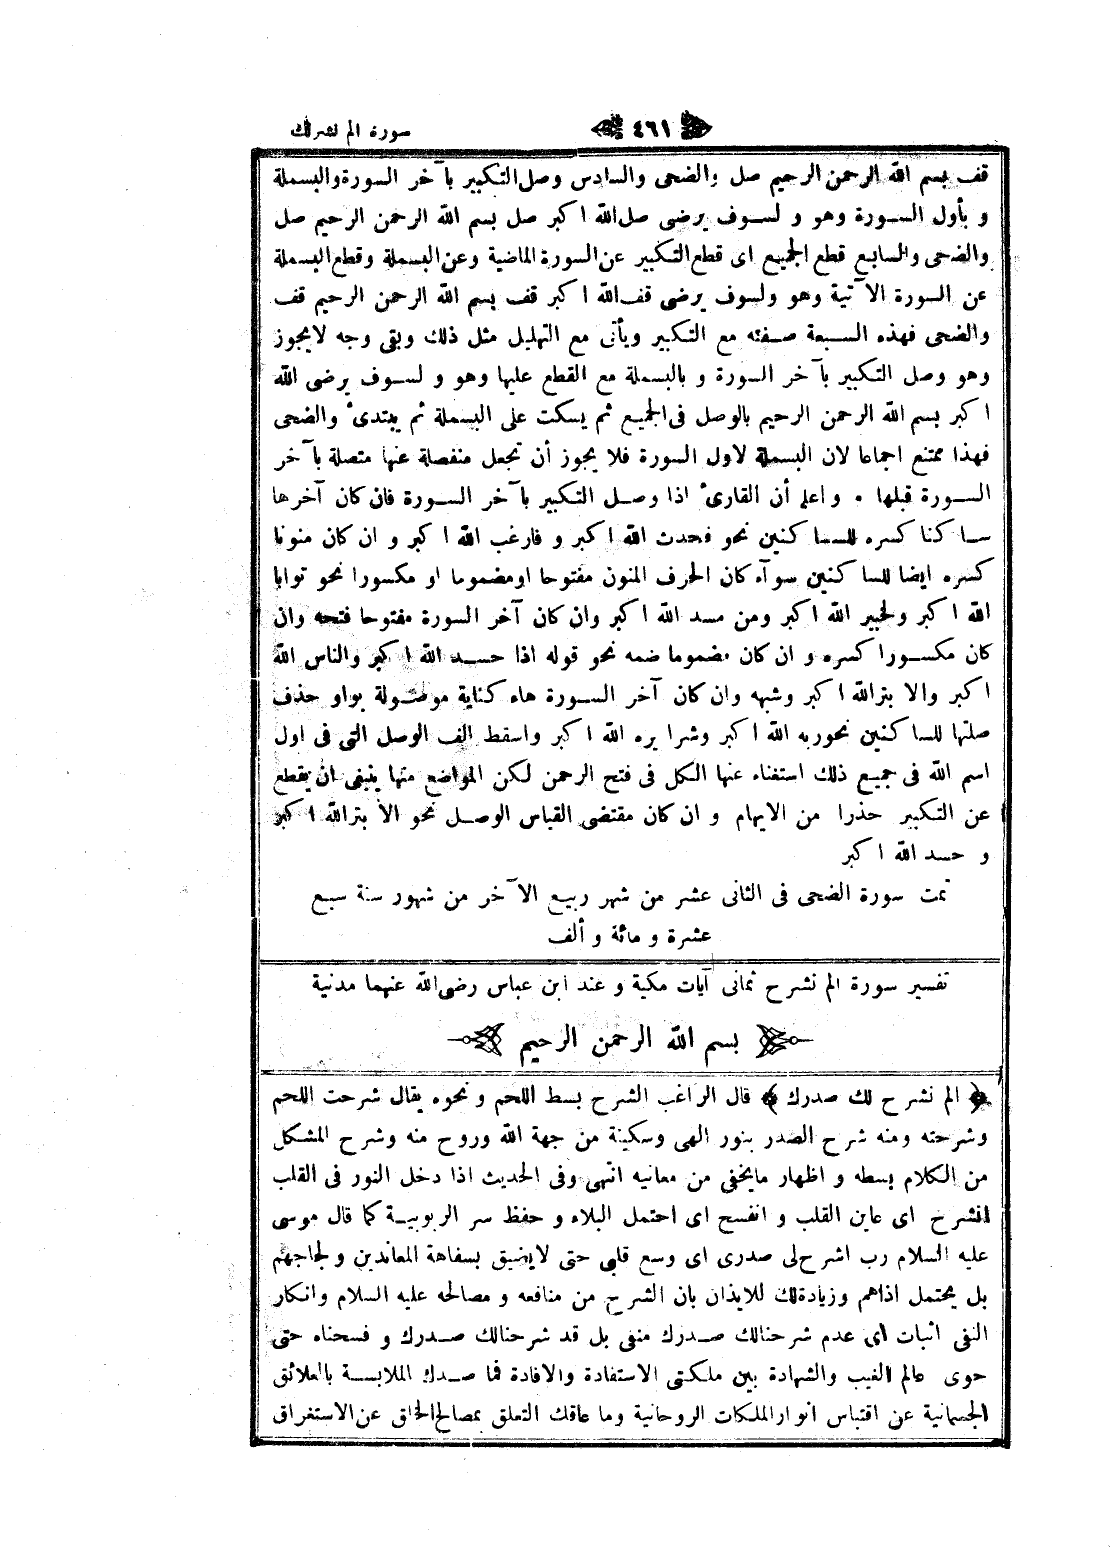 سورة الم نشرلك
٤٦١
قف بسم الله الرحمن الرحيم صل والضحى والسادس وصل التكبير بآخر السورة والبسملة
و بأول السورة وهو و لسوف يرضى صل الله اكبر صل بسم الله الرحمن الرحيم صل
والضحى والسابع قطع الجميع اى قطع التكبير عن السورة الماضية وعن البسملة وقطع البسملة
عن السورة الآتية وهو ولسوف يرضى قف الله اكبر قف بسم الله الرحمن الرحيم قف
والضحى فهذه السبعة صفته مع التكبير ويأتى مع التهليل مثل ذلك وبقى وجه لايجوز
وهو وصل التكبير بآخر السورة و بالبسملة مع القطع عليها وهو و لسوف يرضى الله
اكبر بسم الله الرحمن الرحيم بالوصل فى الجميع ثم يسكت على البسملة ثم يبتدئ والضحى
فهذا ممتنع اجماعا لان البسملة لاول السورة فلا يجوز أن تجعل منفصلة عنها متصلة بآخر
السورة قبلها . واعلم أن القارئ اذا وصل التكبير بآخر السورة فان كان آخرها
ساكنا كسره للساكنين نحو فحدث الله اكبر و فارغب الله اكبر و ان كان منونا
كسره ايضا للساكنين سوآء كان الحرف المنون مفتوحا اومضموما او مكسورا نحو توابا
الله اكبر ولخبير الله اكبر ومن مسد الله اكبر وان كان آخر السورة مفتوحا فتحه وان
كان مكسورا كسره و ان كان مضموما ضمه نحو قوله اذا حسد الله اكبر والناس الله
اكبر والابتر الله اكبر وشبهه وان كان آخر السورة هاء كناية موصولة بواو حذف
صلتها للساكنين نحوربه الله اكبر وشرا يره الله اكبر واسقط الف الوصل التى فى اول
اسم الله فى جميع ذلك استغناء عنها الكل فى فتح الرحمن لكن المواضع منها ينبغى ان يقطع
عن التكبير حذرا من الايهام و ان كان مقتضى القياس الوصل نحو الأبتر الله اكبر
و حسد الله اكبر
تمت سورة الضحى فى الثانى عشر من شهر ربيع الآخر من شهور سنة سبع
عشرة و مائة و ألف
تفسير سورة الم نشرح ثمانى آيات مكية و عند ابن عباس رضى الله عنهما مدنية
بسم الله الرحمن الرحيم
﴿ الم نشرح لك صدرك ﴾ قال الراغب الشرح بسط اللحم و نحوه يقال شرحت اللحم
وشرحته ومنه شرح الصدر بنور الهى وسكينة من جهة الله وروح منه وشرح المشكل
من الكلام بسطه و اظهار مايخفى من معانيه انتهى وفى الحديث اذا دخل النور فى القلب
انشرح اى عاين القلب و انفسح اى احتمل البلاء و حفظ سر الربوبية كما قال موسى
عليه السلام رب اشرح لى صدرى اى وسع قلبى حتى لايضيق بسفاهة المعاندين و لجاجهم
بل يحتمل اذاهم وزيادة لك للايذان بان الشرح من منافعه و مصالحه عليه السلام وانكار
النفى اثبات اى عدم شرحنالك صدرك منفى بل قد شرحنالك صدرك و فسحناه حتى
حوى عالم الغيب والشهادة بين ملكتى الاستفادة والافادة فما صدك الملابسة بالعلائق
الجسمانية عن اقتباس انوار الملكات الروحانية وما عاقك التعلق بمصالح الخلق عن الاستغراق